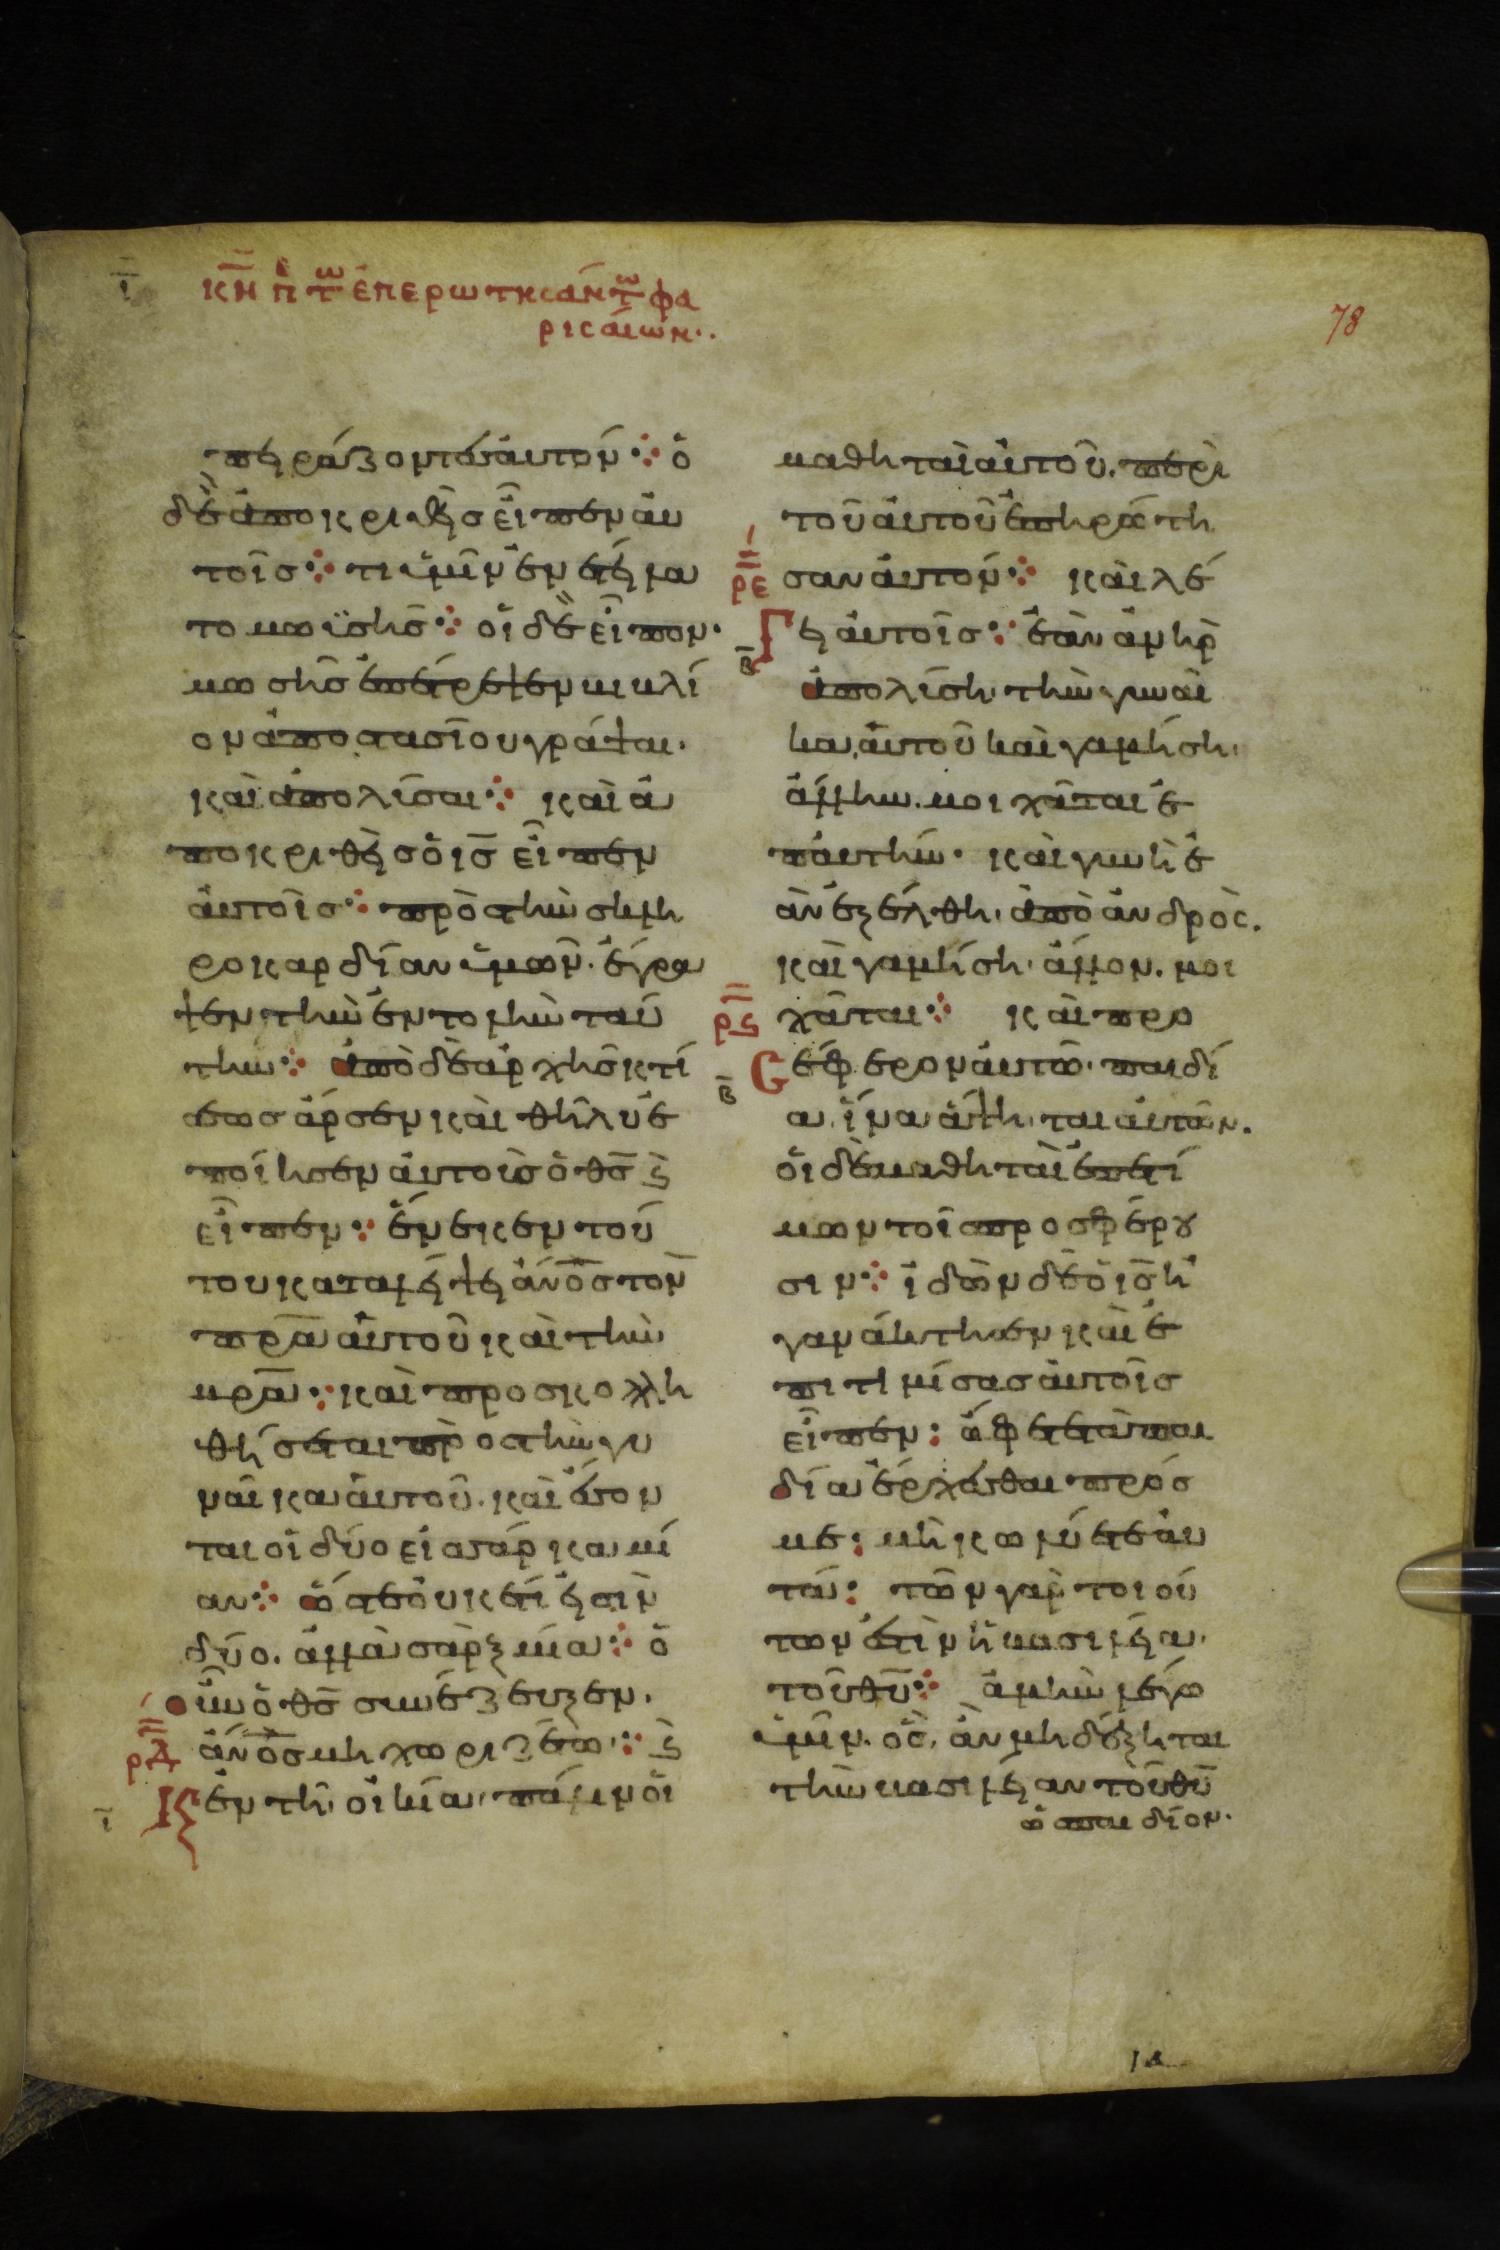 ι
κη π τω ἐπερωτησάν τω φα
ρισαίων..
78
πειράζοντεσ ἀυτόν ⁘ ὁ
δὲ ἀποκριθεὶσ εἶπεν ἀυ
τοῖσ ⁘ τι ὑμῖν ἐνετείλα
το μωϊσῆσ ⁘ οἱ δὲ εἶπον·
μωσῆσ ἐπέτρεψεν βιβλί
ον ἀποστασῖου γράψαι.
καὶ ἀπολῦσαι ⁘ καὶ ἀ
ποκριθεὶσ ὁ ισ̅ εἶπεν
ἀυτοῖσ ⁘ πρὸσ τὴν σκλη
ροκαρδίαν ὑμῶν. ἔγρα
ψεν τὴν ἐντολὴν ταύ
την ⁘ ἀπὸ δὲ ἀρχῆσ κτί
σεωσ ἄρσεν καὶ θῆλυ ἐ
ποίησεν ἀυτοὺσ ὁ θσ̅ ϗ
εἶπεν ⁘ ἕνεκεν τού
του καταλείψει ἀνο̅σ τον
πρα̅ ἀυτοῦ καὶ τὴν
μρα̅ ⁘ καὶ προσκολλη
θήσεται προσ τὴν γυ
ναῖκα ἀυτοῦ. καὶ ἔσον
ται οἱ δύο εἰσ σάρκα μί
αν ⁘ ὥστε ὀυκέτι εἰσὶν
δύο. ἀλλὰ σὰρξ μία ⁘ ὃ
οὖν ὁ θσ̅ συνέζευξεν.
ρδ ἀνο̅σ μη χωριζέτω ⁘ ϗ
ι Κ ἐν τῆ οἰκία πάλιν ὁι
μαθηταὶ ἀυτοῦ. περὶ
τοῦ ἀυτοῦ ἐπηρώτη
ρε σαν ἀυτόν ⁘ καὶ λέ
β Γ ει ἀυτοῖσ ⁘ ἐὰν ἀνὴρ
ἀπολύση τὴν γυναῖ
κα ἀυτοῦ καὶ γαμήση
ἄλλην. μοιχᾶται ἐ
π ἀυτήν· καὶ γυνὴ ἐ
ὰν ἐξέλθη ἀπὸ ἀνδρὸς.
καὶ γαμήση ἄλλον. μοι
ρϛ χᾶται ⁘ καὶ προ
β Ϲ έφερον ἀυτῶ παιδί
α ἵνα ἅψηται ἀυτῶν.
ὁι δὲ μαθηταὶ ἐπετί
μων τοῖσ προσφέρου
σιν ⁘ ἰδὼν δὲ ὁ ισ̅ ἠ
γανάκτησεν καὶ ἐ
πιτιμήσασ ἀυτοῖσ
εἶπεν : ἄφετε τὰ παι
δία ἔρχεσθαι πρόσ
με : μὴ κωλύετε ἀυ
τά : τῶν γαρ τοιού
των ἐστὶν ἡ βασιλεία
τοῦ θυ̅ ⁘ ἀμὴν λέγω
ὑμῖν. ὃς ἂν μη δέξηται
τὴν βασιλείαν τοῦ θυ̅
ὡ παιδίον.